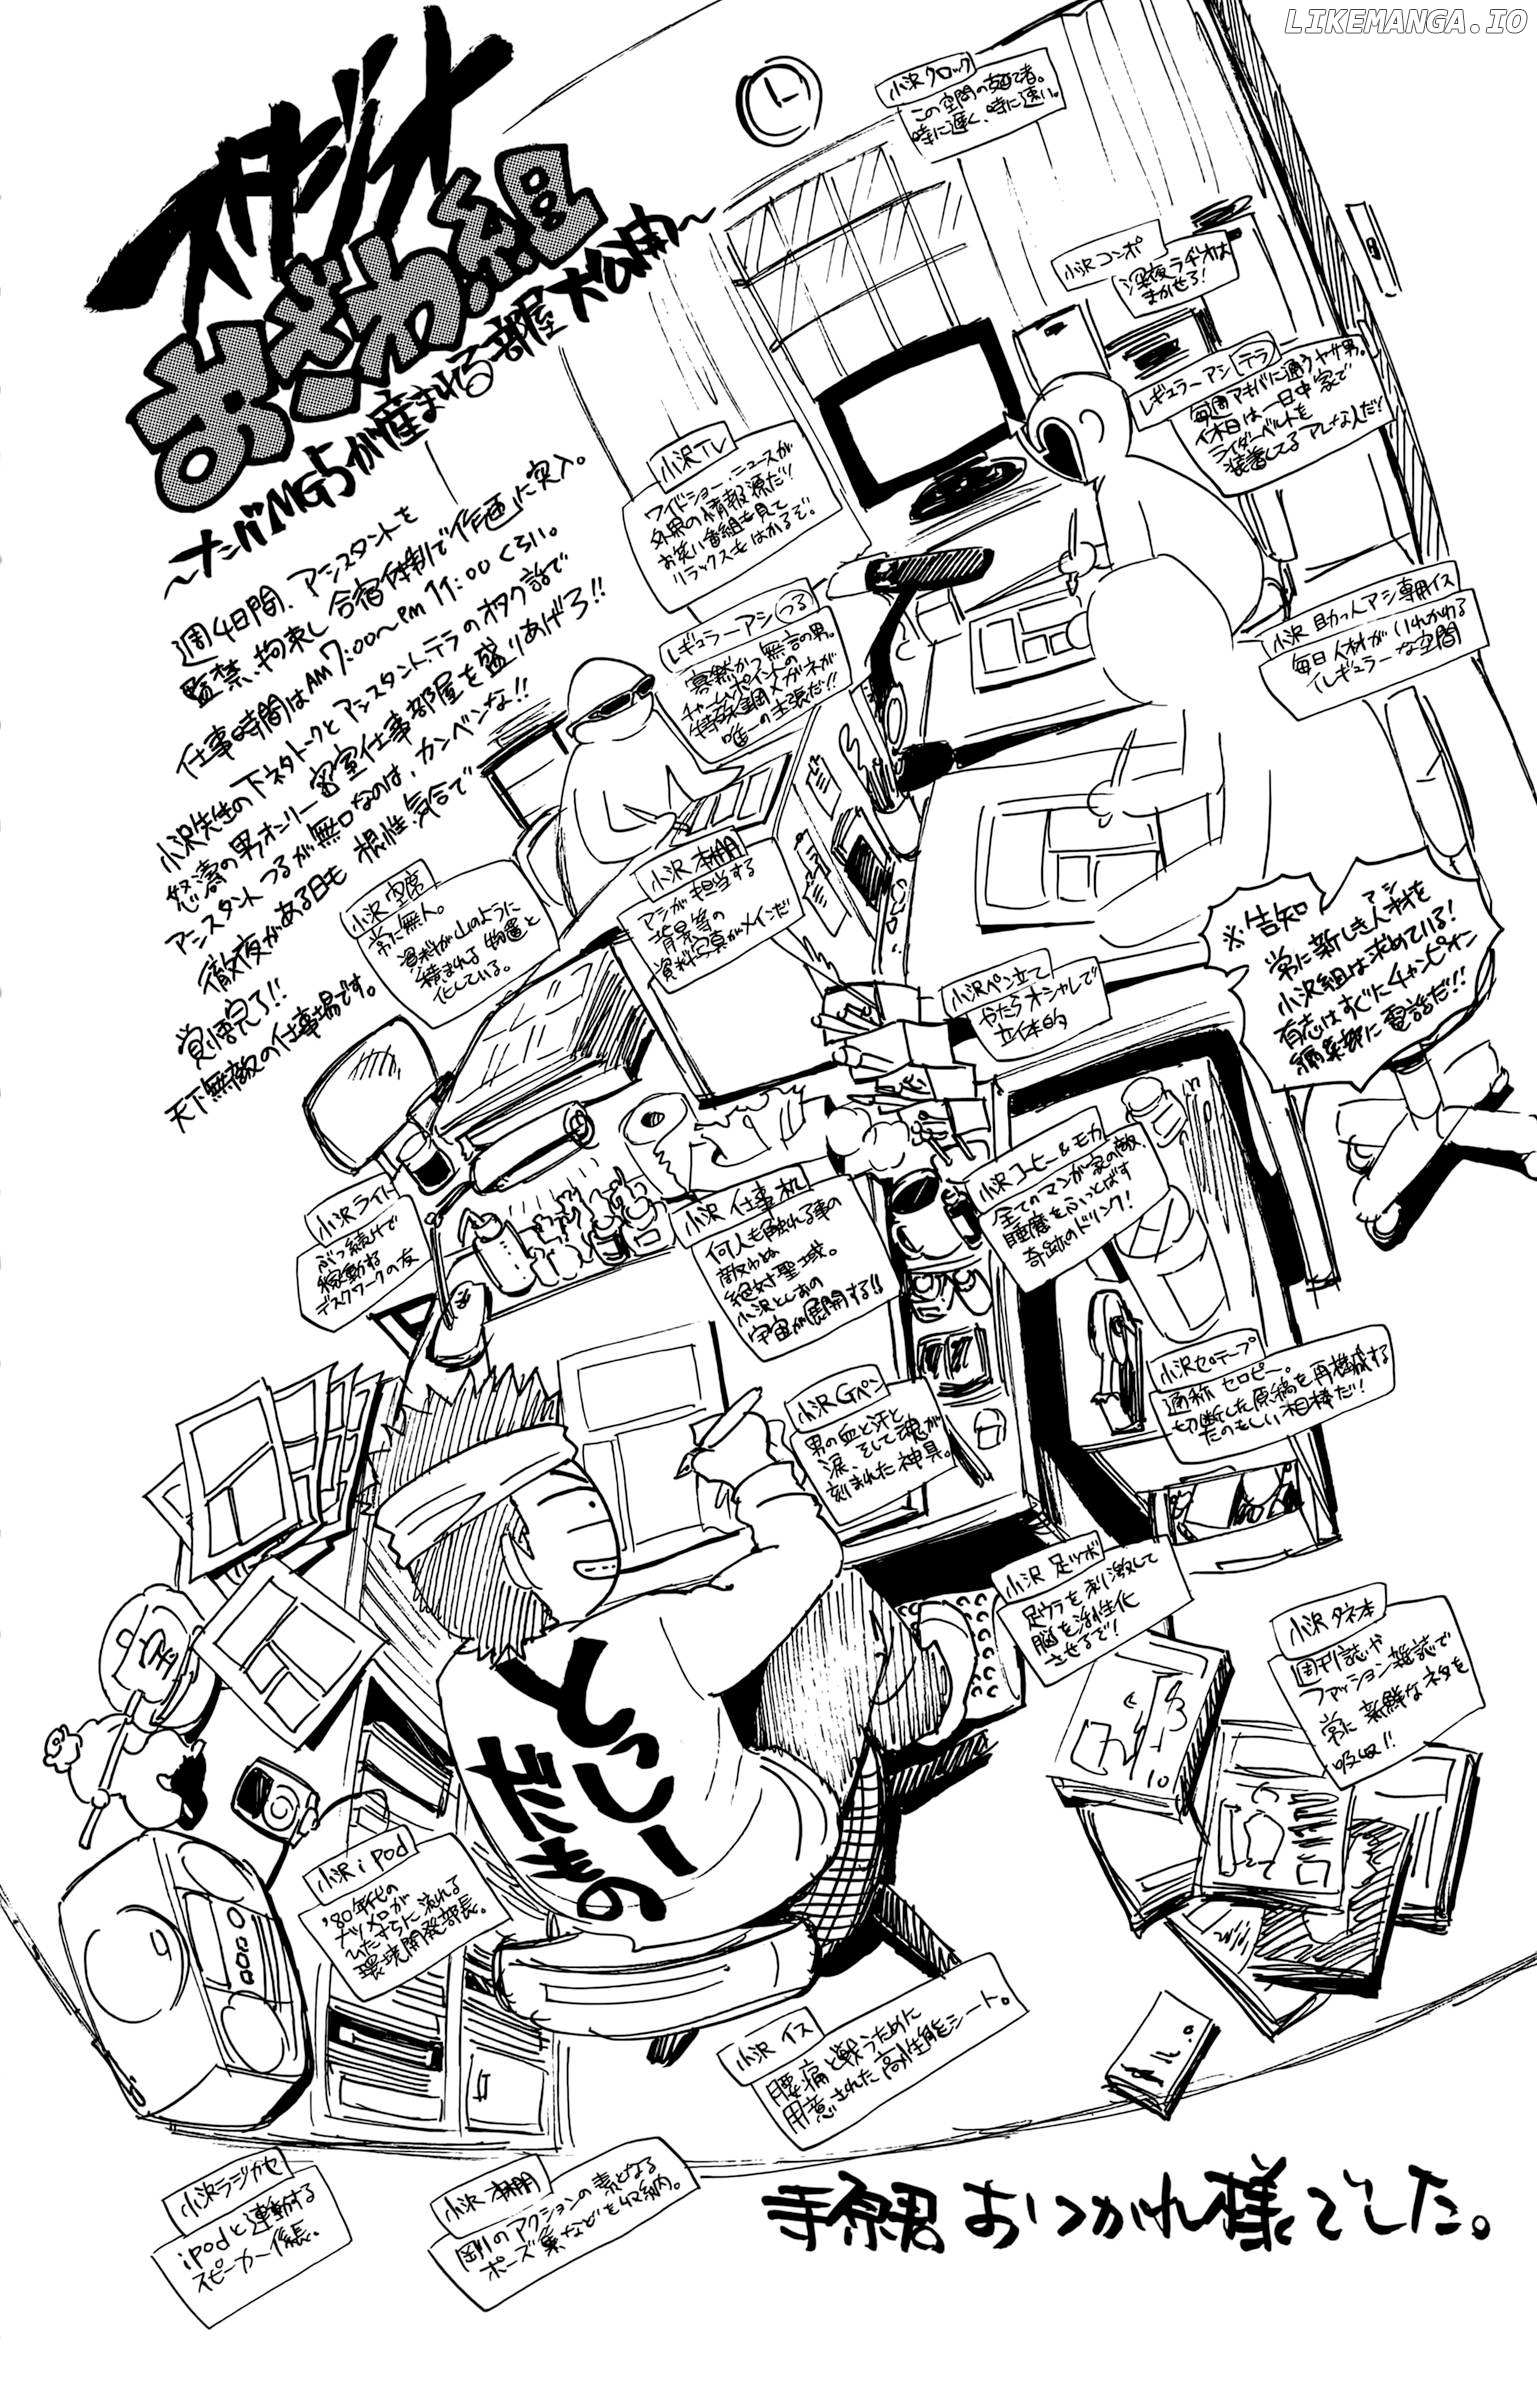 LIKEMANGA.IO
スタジオ
おざわ組
〜ナンバMG5が産まれる部屋大公開〜
週4日間、アシスタントを
監禁、拘束し合宿体制で「作画」に突入。
仕事時間はAM7:00〜PM11:00くらい。
小沢先生の下ネタトークとアシスタント、テラのオタク話で
怒濤の男オンリー密室仕事部屋を盛りあげろ!!
アシスタントつるが無口なのは、カンベンな!!
徹夜がある日も根性、気合で
覚悟完了!!
天下無敵の仕事場です。
小沢クロック
この空間の支配者。
時に遅く、時に速い。
小沢コンポ
深夜ラヂオは
まかせろ!
レギュラーアシ テラ
毎週アキバに通うヤサ男。
休日は一日中家で
ライダーベルトを
装着してるアレな人だ!
小沢TV
ワイドショー、ニュースが
外界の情報源だ!
お笑い番組も見て
リラックスもはかるぞ。
レギュラーアシ つる
寡黙かつ無言の男。
チャームポイントの
特殊鋼メガネが
唯一の主張だ!!
小沢 助っ人アシ専用イス
毎日人材がいれかわる
イレギュラーな空間
小沢 空席
常に無人。
資料が山のように
積まれ物置と
化している。
小沢 本棚
アシが担当する
背景等の
資料写真がメインだ
小沢ペン立て
やたらオシャレで
立体的
※告知
常に新しき人材を
アシ
小沢組は求めている!
有志はすぐにチャンピオン
編集部に電話だ!!
小沢ライト
ぶっ続けで
稼動する
デスクワークの友
小沢 仕事机
何人も触れる事の
敵わぬ
絶対聖域。
小沢としおの
宇宙が展開する!!
小沢コーヒー&モカ
全てのマンガ家の敵、
睡魔をふっとばす
奇跡のドリンク!
小沢Gペン
男の血と汗と
涙、そして魂が
刻まれた神具。
小沢セロテープ
通称セロピー。
切断した原稿を再構成する
たのもしい相棒だ!
小沢 足ツボ
足ウラを刺激して
脳を活性化
させるぞ!
小沢 タネ本
週刊誌や
ファッション雑誌で
常に新鮮なネタを
吸収!!
とっしー
だもの
宝
10
小沢iPod
'80年代の
ナツメロが
ひたすらに流れる
環境開発部長。
小沢 イス
腰痛と戦うために
用意された高性能シート。
小沢ラジカセ
iPodと連動する
スピーカー係長。
小沢 本棚
剛のアクションの素となる
ポーズ集などを収納。
寺原君 おつかれ様でした。